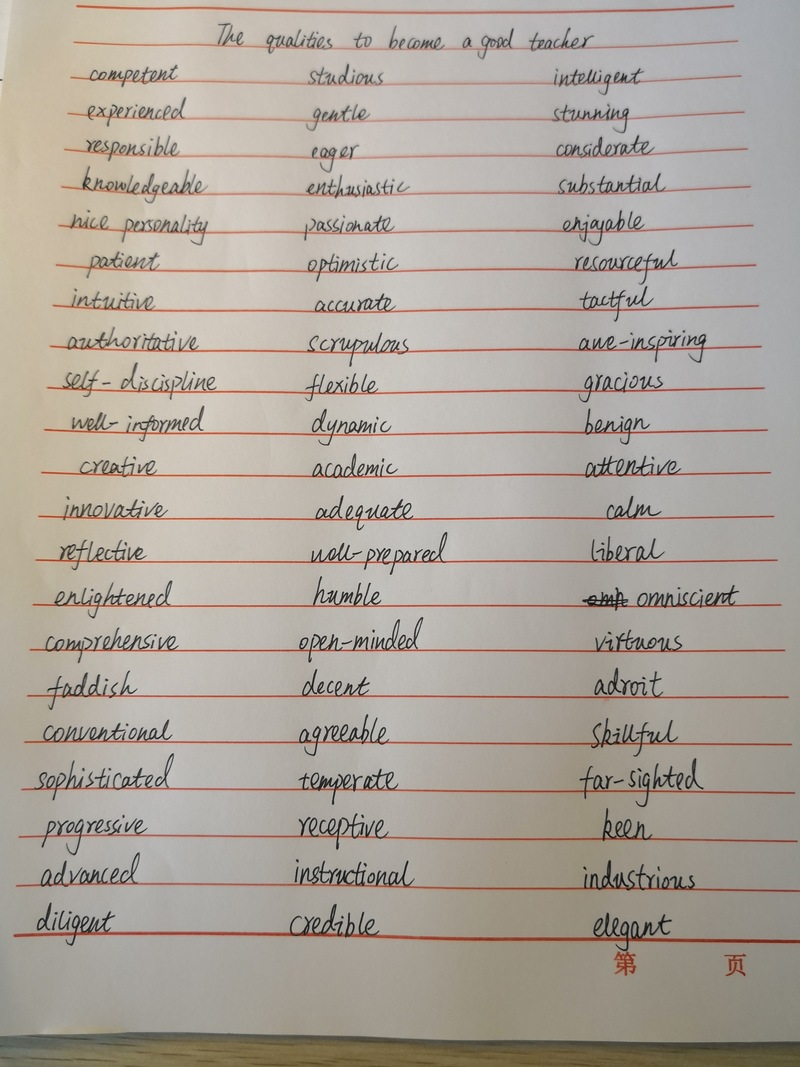 The qualities to become a good teacher
competent studious intelligent
experienced gentle stunning
responsible eager considerate
knowledgeable enthusiastic substantial
nice personality passionate enjoyable
patient optimistic resourceful
intuitive accurate tactful
authoritative scrupulous awe-inspiring
self-discispline flexible gracious
well-informed dynamic benign
creative academic attentive
innovative adequate calm
reflective well-prepared liberal
enlightened humble omniscient
comprehensive open-minded virtuous
faddish decent adroit
conventional agreeable skillful
sophisticated temperate far-sighted
progressive receptive keen
advanced instructional industrious
diligent credible elegant
第 页